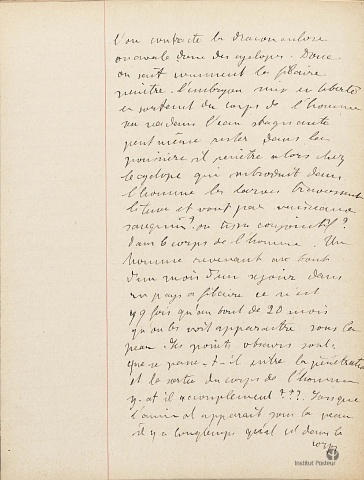 L'on contracte la dracunculose
on avale donc des cyclopes. Donc
on sait comment la filaire
pénètre. L'embryon mis en liberté
en sortant du corps de l'homme
va dans l'eau stagnante
peut même rester dans la
poussière, il pénètre alors chez
le cyclope qui introduit dans
l'homme les larves traversent
et vont par vaisseaux
sanguins? ou tissu conjonctif?
dans le corps de l'homme. Un
homme revenant au bout
d'un mois d'un séjour dans
un pays à filaire ce n'est
qqfois qu'au bout de 20 mois
qu'on les voit apparaître sous la
peau. Des points obscurs sont:
que se passe-t-il entre la pénétration
et la sortie du corps de l'homme
y-at il accouplement???. Lorsque
l'animal apparaît sous la peau
il y a longtemps qu'il est dans le
corps
Institut Pasteur